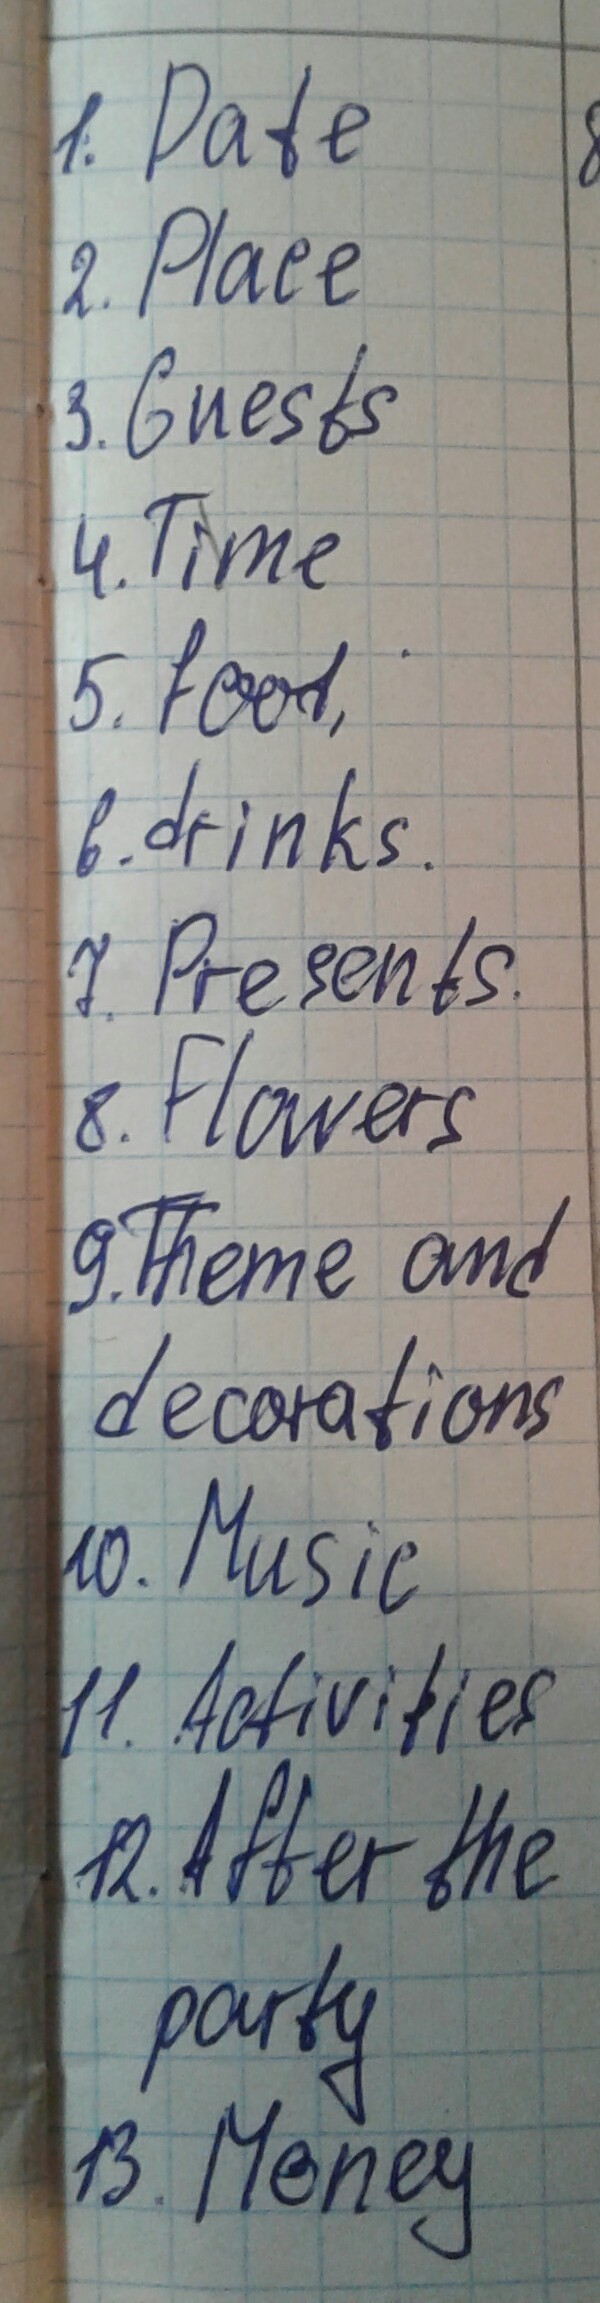 1. Date
2. Place
3. Guests
4. Time
5. food,
6. drinks.
7. Presents.
8. Flowers
9. Theme and
decorations
10. Music
11. Activities
12. After the
party
13. Money